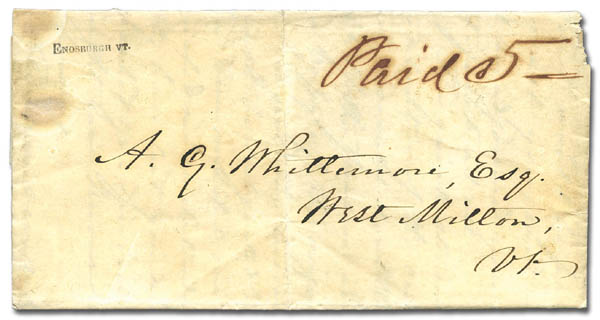 ENOSBURGH VT.
Paid 5
A. G. Whittemore, Esq.
West Milton,
Vt.